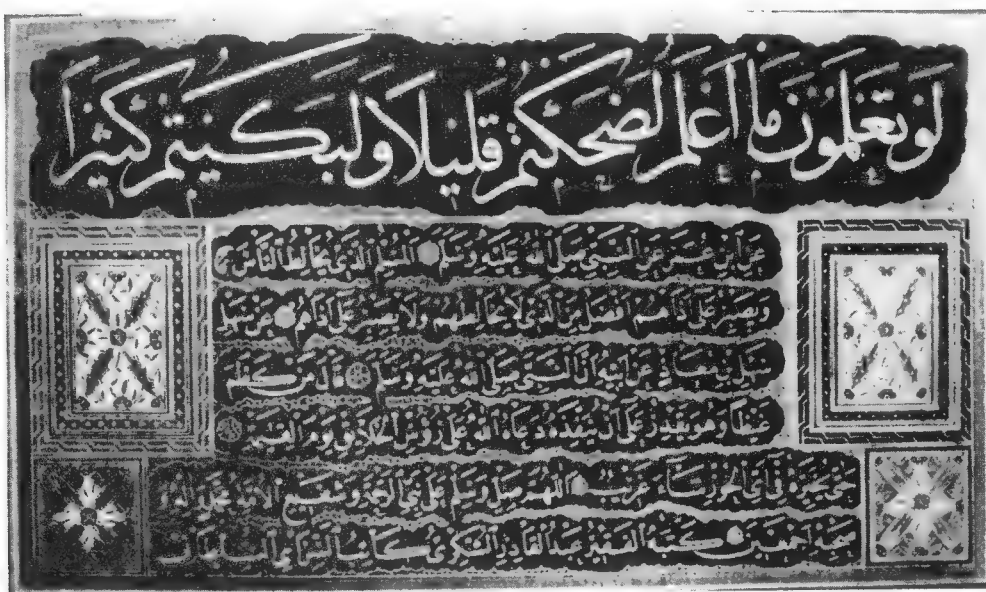 لَوْ تَعْلَمُونَ مَا أَعْلَمُ لَضَحِكْتُمْ قَلِيلًا وَلَبَكَيْتُمْ كَثِيرًا
عن ابن عمر عن النبي صلى الله عليه وسلم المسلم الذي يخالط الناس
ويصبر على أذاهم أفضل من الذي لا يخالطهم ولا يصبر على أذاهم عن سهل
بن معاذ عن أبيه أن النبي صلى الله عليه وسلم قال من كظم
غيظا وهو يقدر على أن ينفذه دعاه الله على رؤس الخلائق يوم القيمة
حتى يخيره في أي الحور شاء اللهم صل وسلم على نبي الرحمة وشفيع الأمة محمد وآله و
صحبه أجمعين كتبه الفقير عبد القادر الشكري